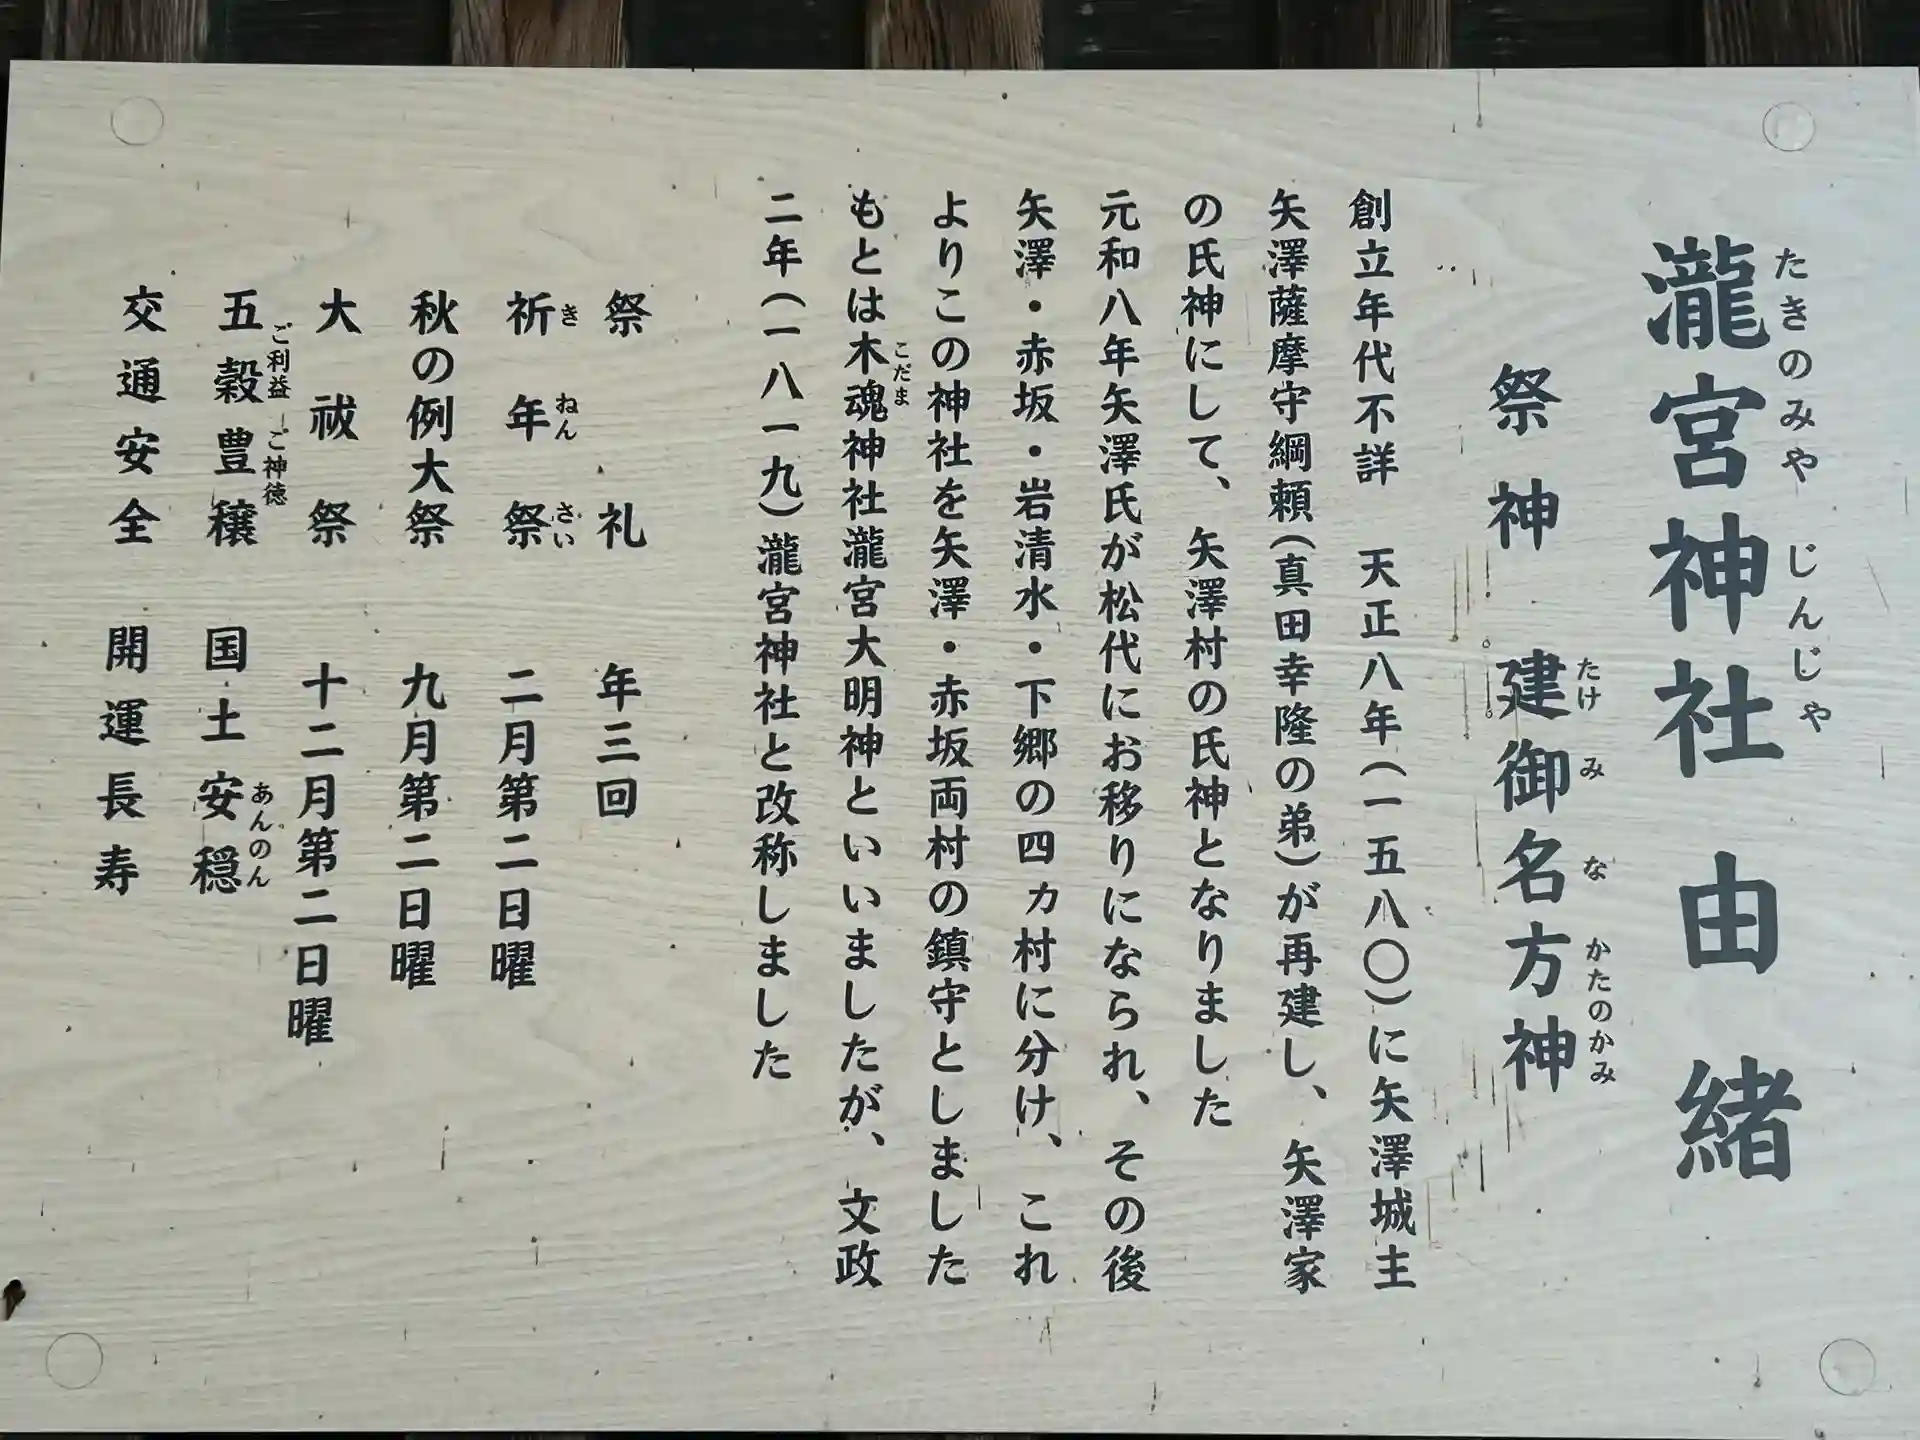 瀧宮神社由緒
たきのみやじんじゃ
祭神 建御名方神
たけみなかたのかみ
創立年代不詳 天正八年(一五八〇)に矢澤城主
矢澤薩摩守綱頼(真田幸隆の弟)が再建し、矢澤家
の氏神にして、矢澤村の氏神となりました
元和八年矢澤氏が松代にお移りになられ、その後
矢澤・赤坂・岩清水・下郷の四ヵ村に分け、これ
よりこの神社を矢澤・赤坂両村の鎮守としました
もとは木魂神社瀧宮大明神といいましたが、文政
こだま
二年(一八一九)瀧宮神社と改称しました
祭礼 年三回
祈年祭 二月第二日曜
きねんさい
秋の例大祭 九月第二日曜
大祓祭 十二月第二日曜
ご利益 ご神徳
五穀豊穣 国土安穏
あんのん
交通安全 開運長寿